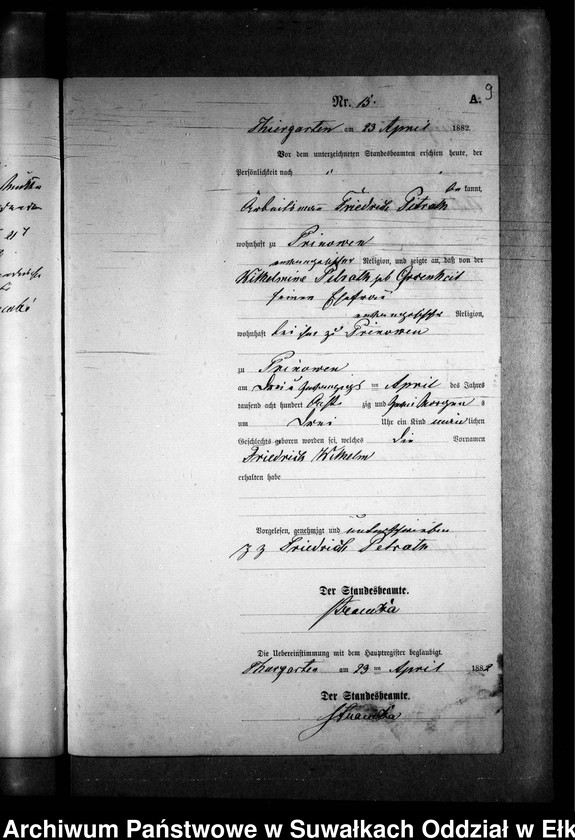 9
Nr. 15. A.
Thiergarten am 23 April 1882.
Vor dem unterzeichneten Standesbeamten erschien heute, der
Persönlichkeit nach
be kannt,
Arbeitsmann Friedrich Petrath
wohnhaft zu Prinowen
evangelischer Religion, und zeigte an, daß von der
Wilhelmine Petrath geb
seiner Ehefrau
evangelischer Religion,
wohnhaft bei ihm zu Prinowen
zu Prinowen
am Drei u zwanzigs ten April des Jahres
tausend acht hundert Acht zig und zwei Morgens
um Drei Uhr ein Kind männ lichen
Geschlechts geboren worden sei, welches die Vornamen
Friedrich Wilhelm
erhalten habe
Vorgelesen, genehmigt und unterschrieben
Friedrich Petrath
Der Standesbeamte.
Die Uebereinstimmung mit dem Hauptregister beglaubigt.
Thiergarten am 23 ten April 1882
Der Standesbeamte.
Archiwum Państwowe w Suwałkach Oddział w Ełk